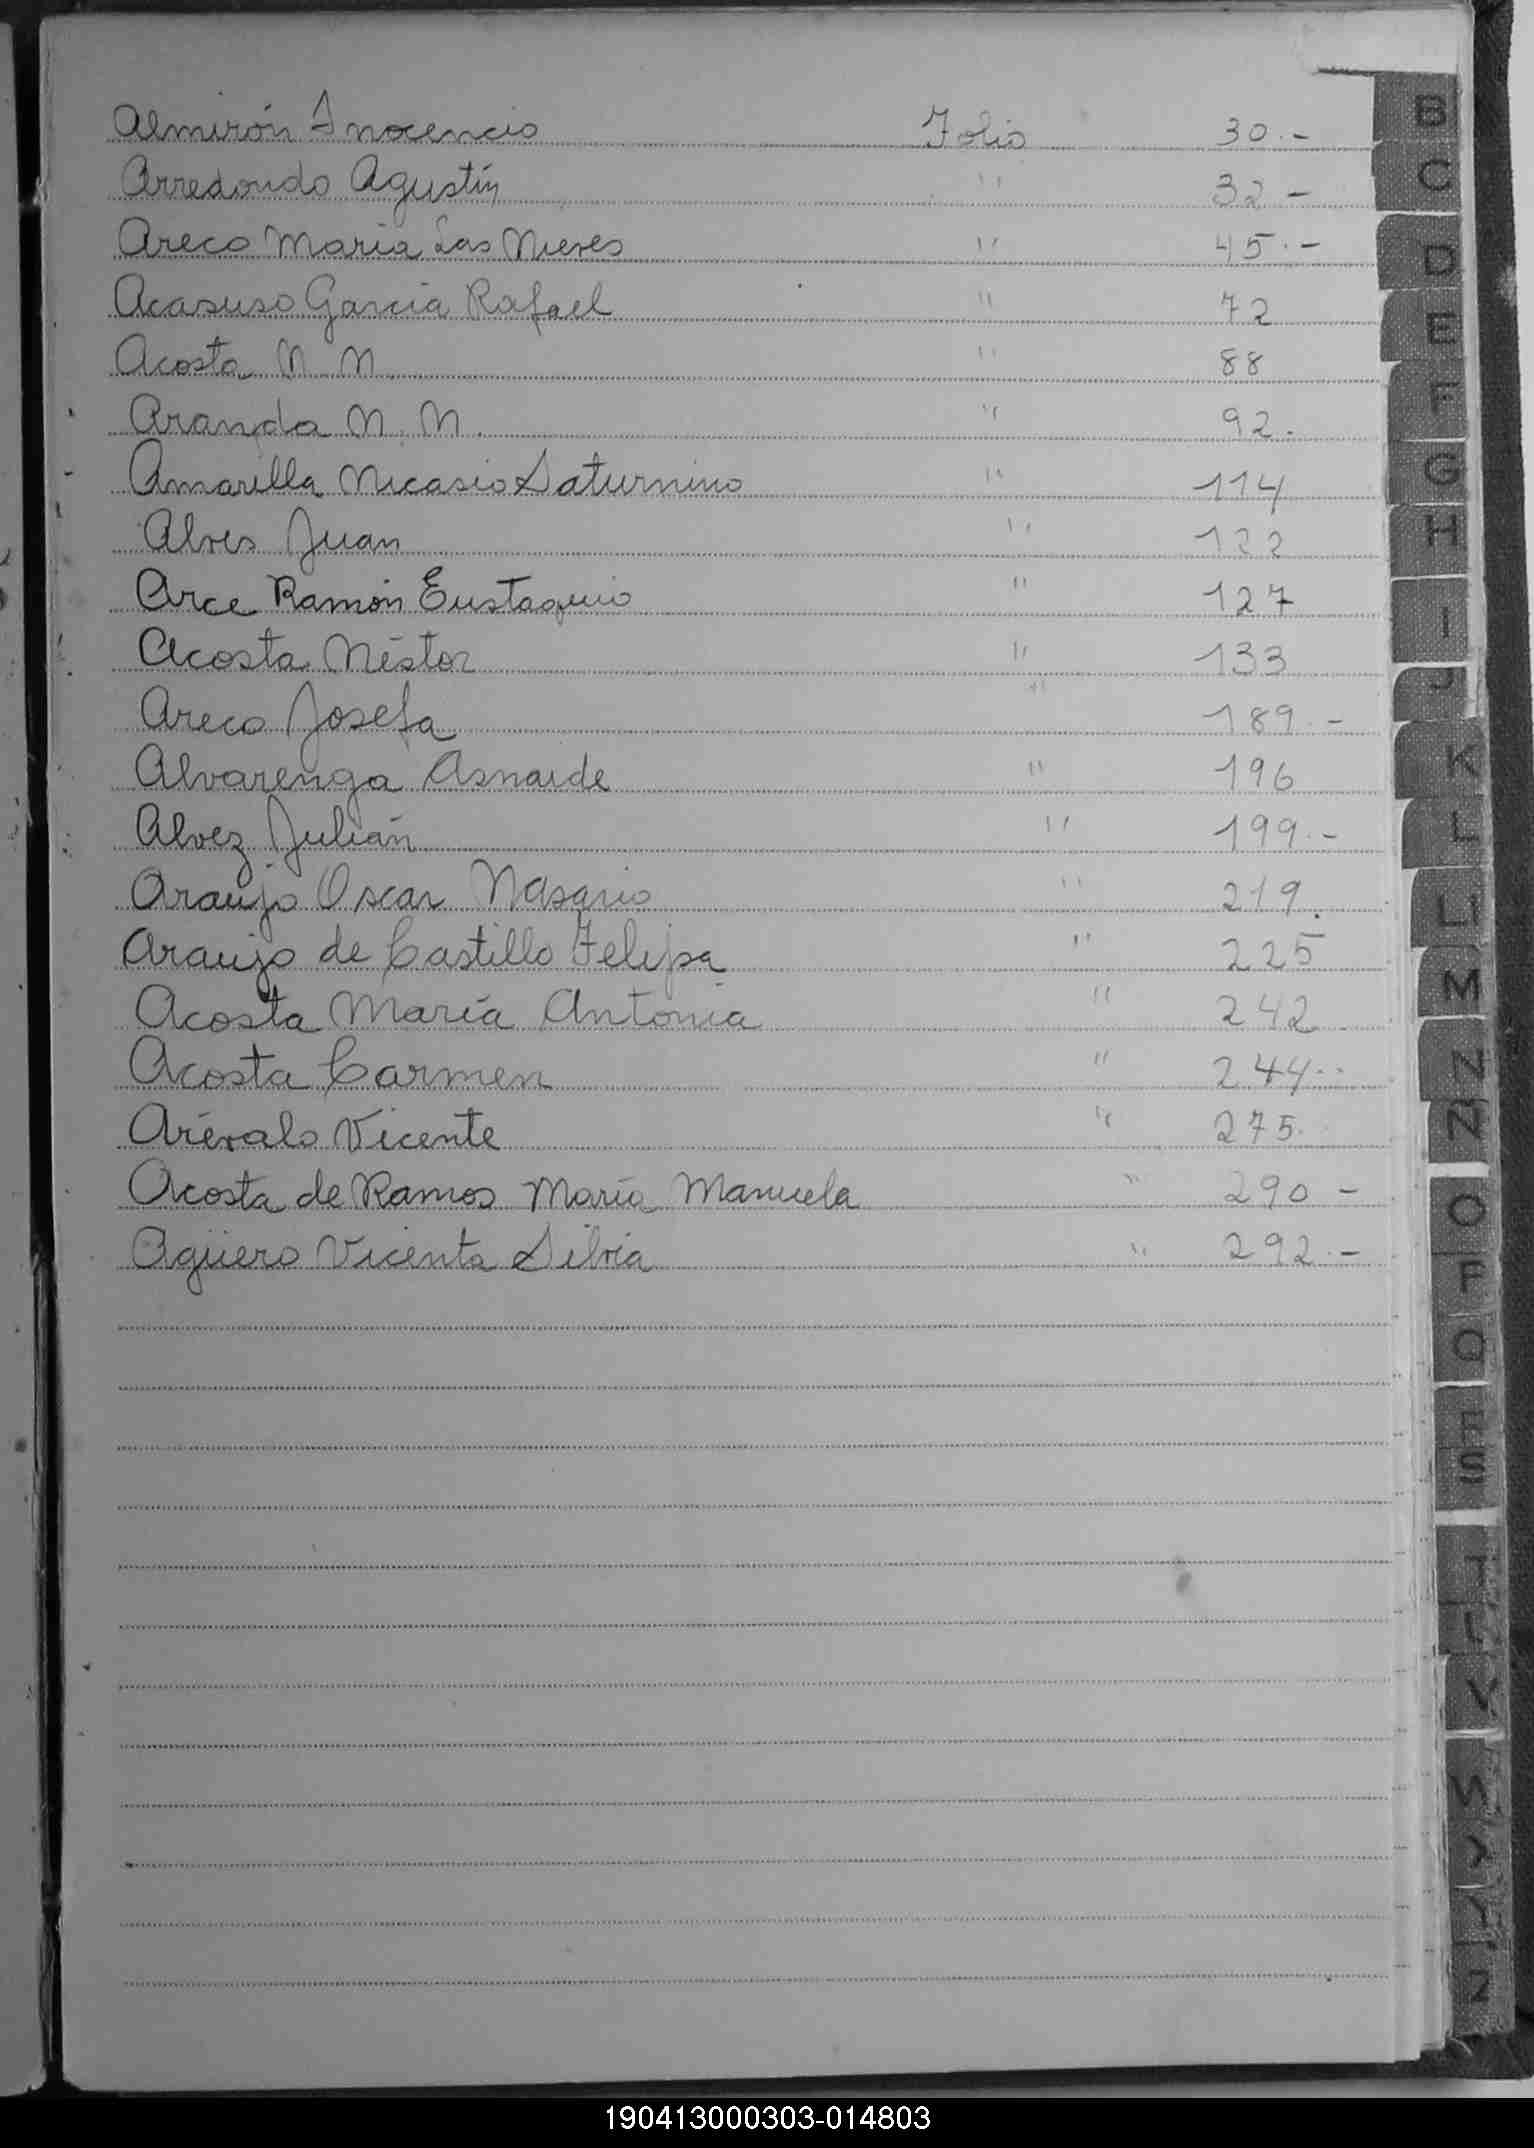 Almirón Inocencio Folio 30.-
Arredondo Agustín " 32 -
Areco Maria Las Nieves " 45.-
Acasuso Garcia Rafael " 72
Acosta N. N. " 88
Aranda N. N. " 92.
Amarilla Nicasio Saturnino " 114
Alves Juan " 122
Arce Ramón Eustaquio " 127
Acosta Néstor " 133
Areco Josefa " 189.-
Alvarenga Asnaide " 196
Alvez Julián " 199.-
Araujo Oscar Nasario " 219.
Araujo de Castillo Felipa " 225
Acosta María Antonia " 242
Acosta Carmen " 244..
Arévalo Vicente " 275.
Acosta de Ramos María Manuela " 290 -
Agüero Vicenta Silvia " 292.-
B
C
D
E
F
G
H
I
J
K
L
Ll
M
N
Ñ
O
P
Q
R
S
T
V
Z
190413000303-014803